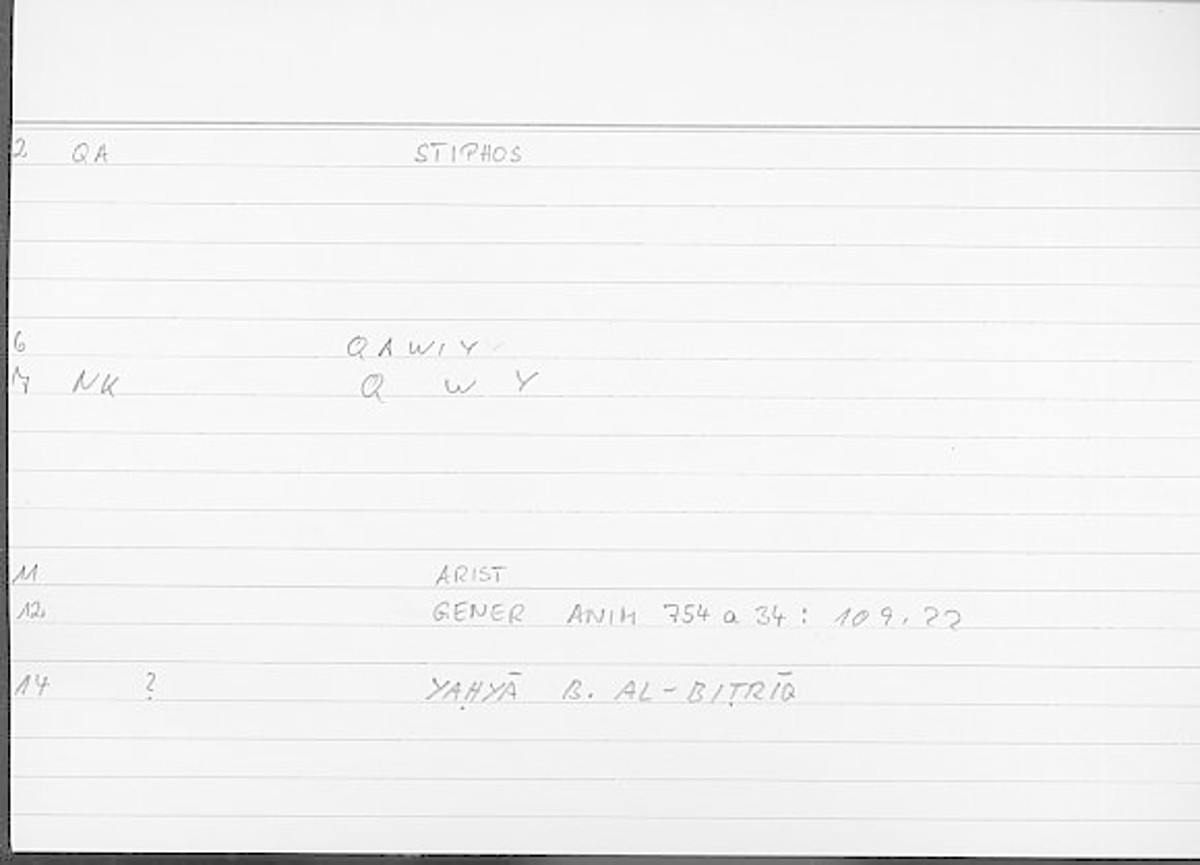 2 QA STIPHOS
6 QAWIY
7 NK Q W Y
11 ARIST
12 GENER ANIM 754 a 34 : 109,22
14 ? YAḤYĀ B. AL-BIṬRĪQ